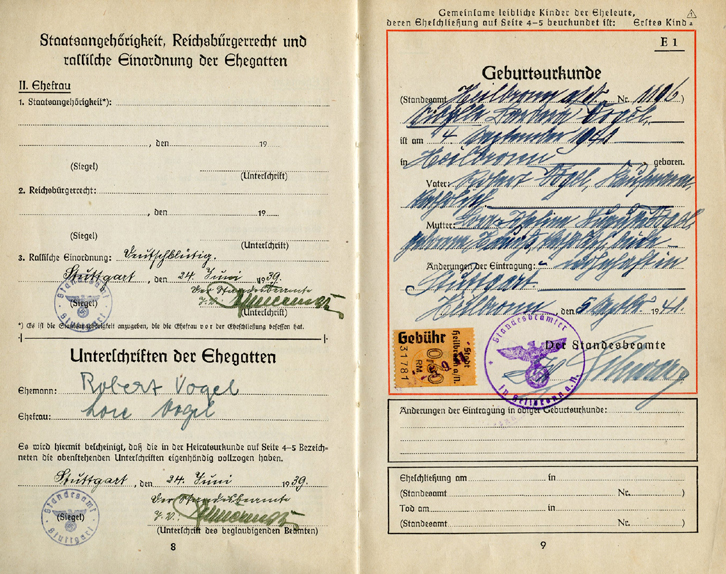 Staatsangehörigkeit, Reichsbürgerrecht und
rassische Einordnung der Ehegatten
II. Ehefrau
1. Staatsangehörigkeit*):
, den 19
(Siegel)
(Unterschrift)
2. Reichsbürgerrecht:
, den 19
(Siegel)
(Unterschrift)
3. Rassische Einordnung: Deutschblütig.
Stuttgart, den 24. Juni 1939.
Der Standesbeamte
(Siegel)
J.V.
(Unterschrift)
*) Es ist die Staatsangehörigkeit anzugeben, die die Ehefrau vor der Eheschließung besessen hat.
Unterschriften der Ehegatten
Ehemann: Robert Vogel
Ehefrau: Lore Vogel
Es wird hiermit bescheinigt, daß die in der Heiratsurkunde auf Seite 4-5 Bezeich-
neten die obenstehenden Unterschriften eigenhändig vollzogen haben.
Stuttgart, den 24. Juni 1939.
Der Standesbeamte
Standesamt Stuttgart
(Siegel)
J.V.
(Unterschrift des beglaubigenden Beamten)
8
Gemeinsame leibliche Kinder der Eheleute,
deren Eheschließung auf Seite 4-5 beurkundet ist: Erstes Kind
E 1
Geburtsurkunde
(Standesamt Heilbronn Nr. 1196)
Vogel
ist am 4. September 1941
in Heilbronn geboren.
Vater: Robert Vogel, Kaufmann,
Mutter: Vogel
geborene
Änderungen der Eintragung:
Stuttgart.
Heilbronn, den 5. Septbr. 1941.
Gebühr
Stadt Heilbronn a.N.
RM
31781
Standesbeamter
in Heilbronn a.N.
Der Standesbeamte
Änderungen der Eintragung in obiger Geburtsurkunde:
Eheschließung am in
(Standesamt Nr. )
Tod am in
(Standesamt Nr. )
9